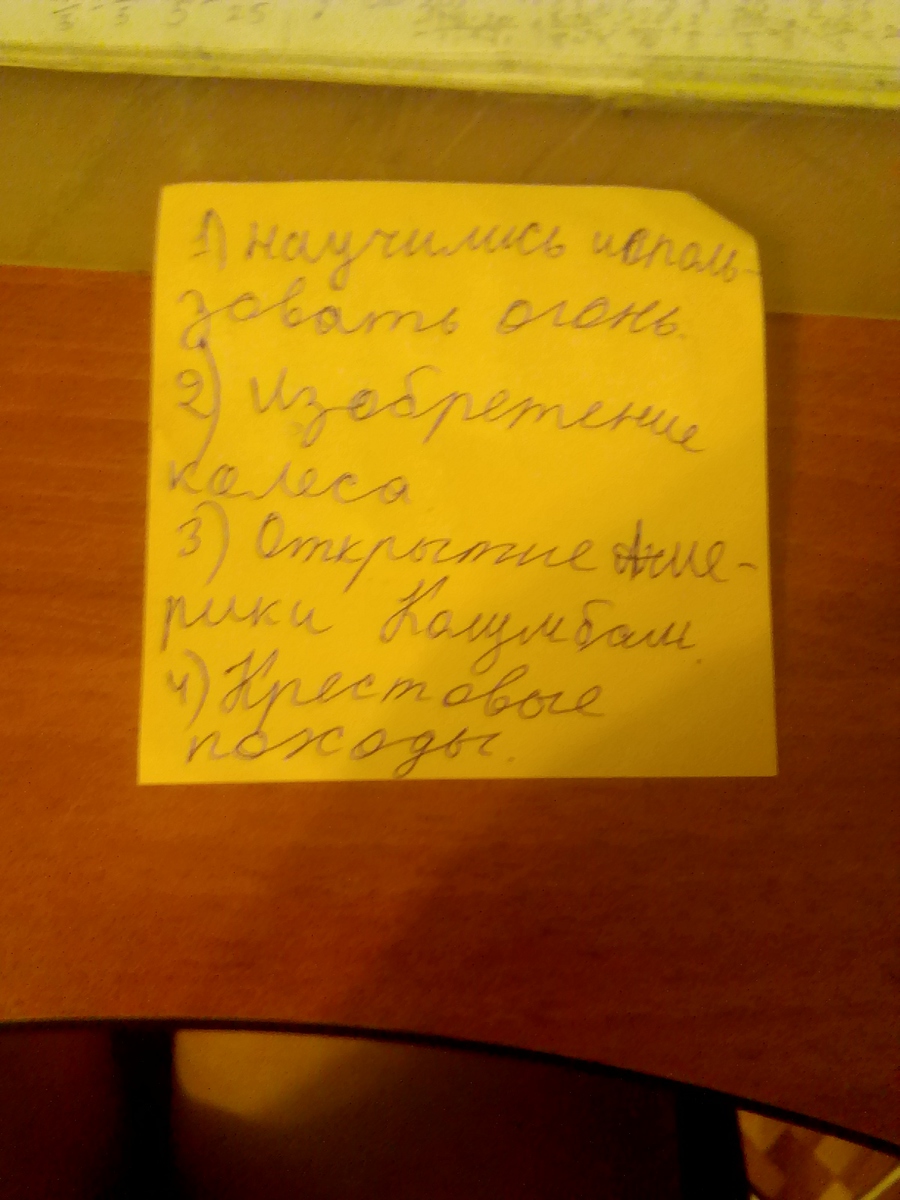 1) научились исполь-
зовать огонь.
2) Изобретение
колеса
3) Открытие Аме-
рики Колумбом.
4) Крестовые
походы.